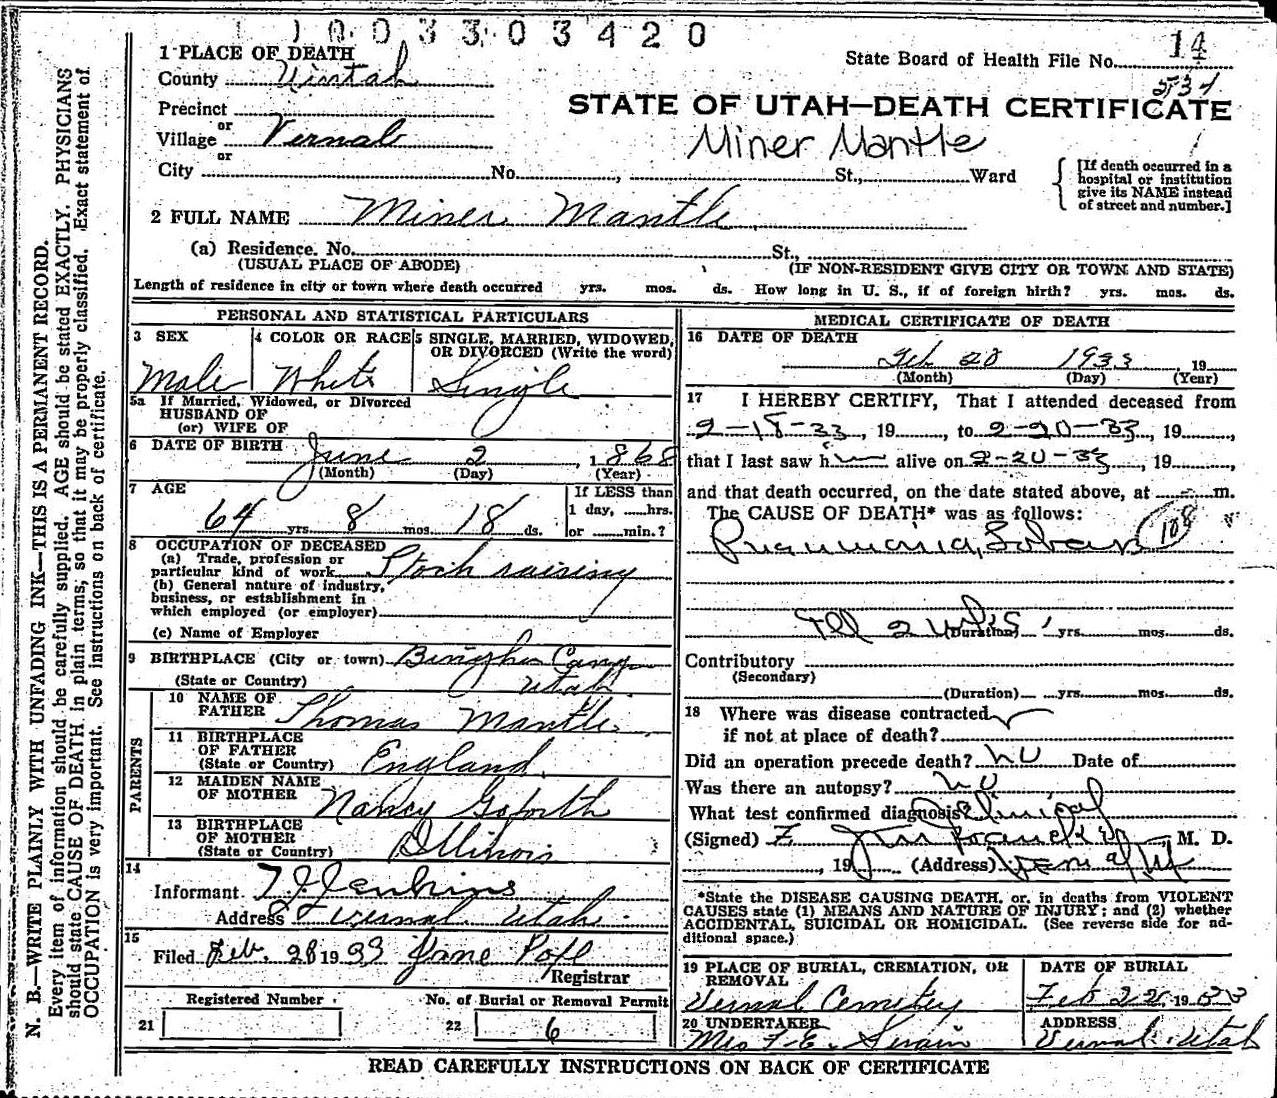 1003303420
1 PLACE OF DEATH
County Uintah
State Board of Health File No. 14
534
Precinct
or
Village Vernal
or
City No. , St., Ward
STATE OF UTAH—DEATH CERTIFICATE
Miner Mantle
[If death occurred in a
hospital or institution
give its NAME instead
of street and number.]
2 FULL NAME Miner Mantle
(a) Residence. No. St.,
(USUAL PLACE OF ABODE) (IF NON-RESIDENT GIVE CITY OR TOWN AND STATE)
Length of residence in city or town where death occurred yrs. mos. ds. How long in U. S., if of foreign birth? yrs. mos. ds.
PERSONAL AND STATISTICAL PARTICULARS
3 SEX
Male
4 COLOR OR RACE
White
5 SINGLE, MARRIED, WIDOWED,
OR DIVORCED (Write the word)
Single
5a If Married, Widowed, or Divorced
HUSBAND OF
(or) WIFE OF
6 DATE OF BIRTH
June 2, 1868
(Month) (Day) (Year)
7 AGE
64 yrs. 8 mos. 18 ds.
If LESS than
1 day, hrs.
or min.?
8 OCCUPATION OF DECEASED
(a) Trade, profession or
particular kind of work Stock raising
(b) General nature of industry,
business, or establishment in
which employed (or employer)
(c) Name of Employer
9 BIRTHPLACE (City or town) Bingham Canyon
(State or Country) Utah
PARENTS
10 NAME OF
FATHER Thomas Mantle
11 BIRTHPLACE
OF FATHER
(State or Country) England
12 MAIDEN NAME
OF MOTHER Nancy Goforth
13 BIRTHPLACE
OF MOTHER
(State or Country) Illinois
14
Informant T J Jenkins
Address Vernal Utah
15
Filed Feb. 28 1933 Jane Pope
Registrar
Registered Number
21
No. of Burial or Removal Permit
22 6
MEDICAL CERTIFICATE OF DEATH
16 DATE OF DEATH
Feb 20 1933 19
(Month) (Day) (Year)
17 I HEREBY CERTIFY, That I attended deceased from
2-18-33, 19, to 2-20-33, 19,
that I last saw him alive on 2-20-33, 19,
and that death occurred, on the date stated above, at m.
The CAUSE OF DEATH* was as follows:
Pneumonia, Lobar 108
Ill 2 wks
(Duration) yrs. mos. ds.
Contributory
(Secondary)
(Duration) yrs. mos. ds.
18 Where was disease contracted
if not at place of death?
Did an operation precede death? no Date of
Was there an autopsy? no
What test confirmed diagnosis? Clinical
(Signed) M. D.
, 19 (Address) Vernal Ut
*State the DISEASE CAUSING DEATH, or, in deaths from VIOLENT
CAUSES state (1) MEANS AND NATURE OF INJURY; and (2) whether
ACCIDENTAL, SUICIDAL OR HOMICIDAL. (See reverse side for ad-
ditional space.)
19 PLACE OF BURIAL, CREMATION, OR
REMOVAL
Vernal Cemetery
DATE OF BURIAL
Feb 22, 1933
20 UNDERTAKER
Mrs F. E. Swain
ADDRESS
Vernal Utah
READ CAREFULLY INSTRUCTIONS ON BACK OF CERTIFICATE
N. B.—WRITE PLAINLY WITH UNFADING INK—THIS IS A PERMANENT RECORD.
Every item of information should be carefully supplied. AGE should be stated EXACTLY. PHYSICIANS
should state CAUSE OF DEATH in plain terms, so that it may be properly classified. Exact statement of
OCCUPATION is very important. See instructions on back of certificate.